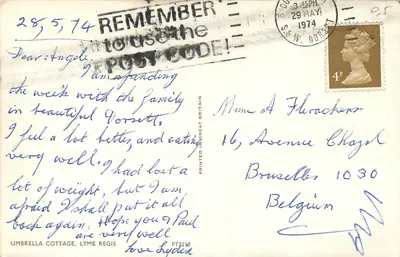 28,5,74
REMEMBER
to use the
POST CODE!
3 - PM
29 MAY
1974
4P
Dear Angele,
I am spending
the week with the family
in beautiful Dorset.
I feel a lot better, and eating
very well. I had lost a
lot of weight, but I am
afraid I shall put it all
back again. Hope you & Paul
are very well
Love Lydia
PRINTED IN GREAT BRITAIN
UMBRELLA COTTAGE, LYME REGIS
Mme A
16, Avenue Chazal
Bruxelles 1030
Belgium